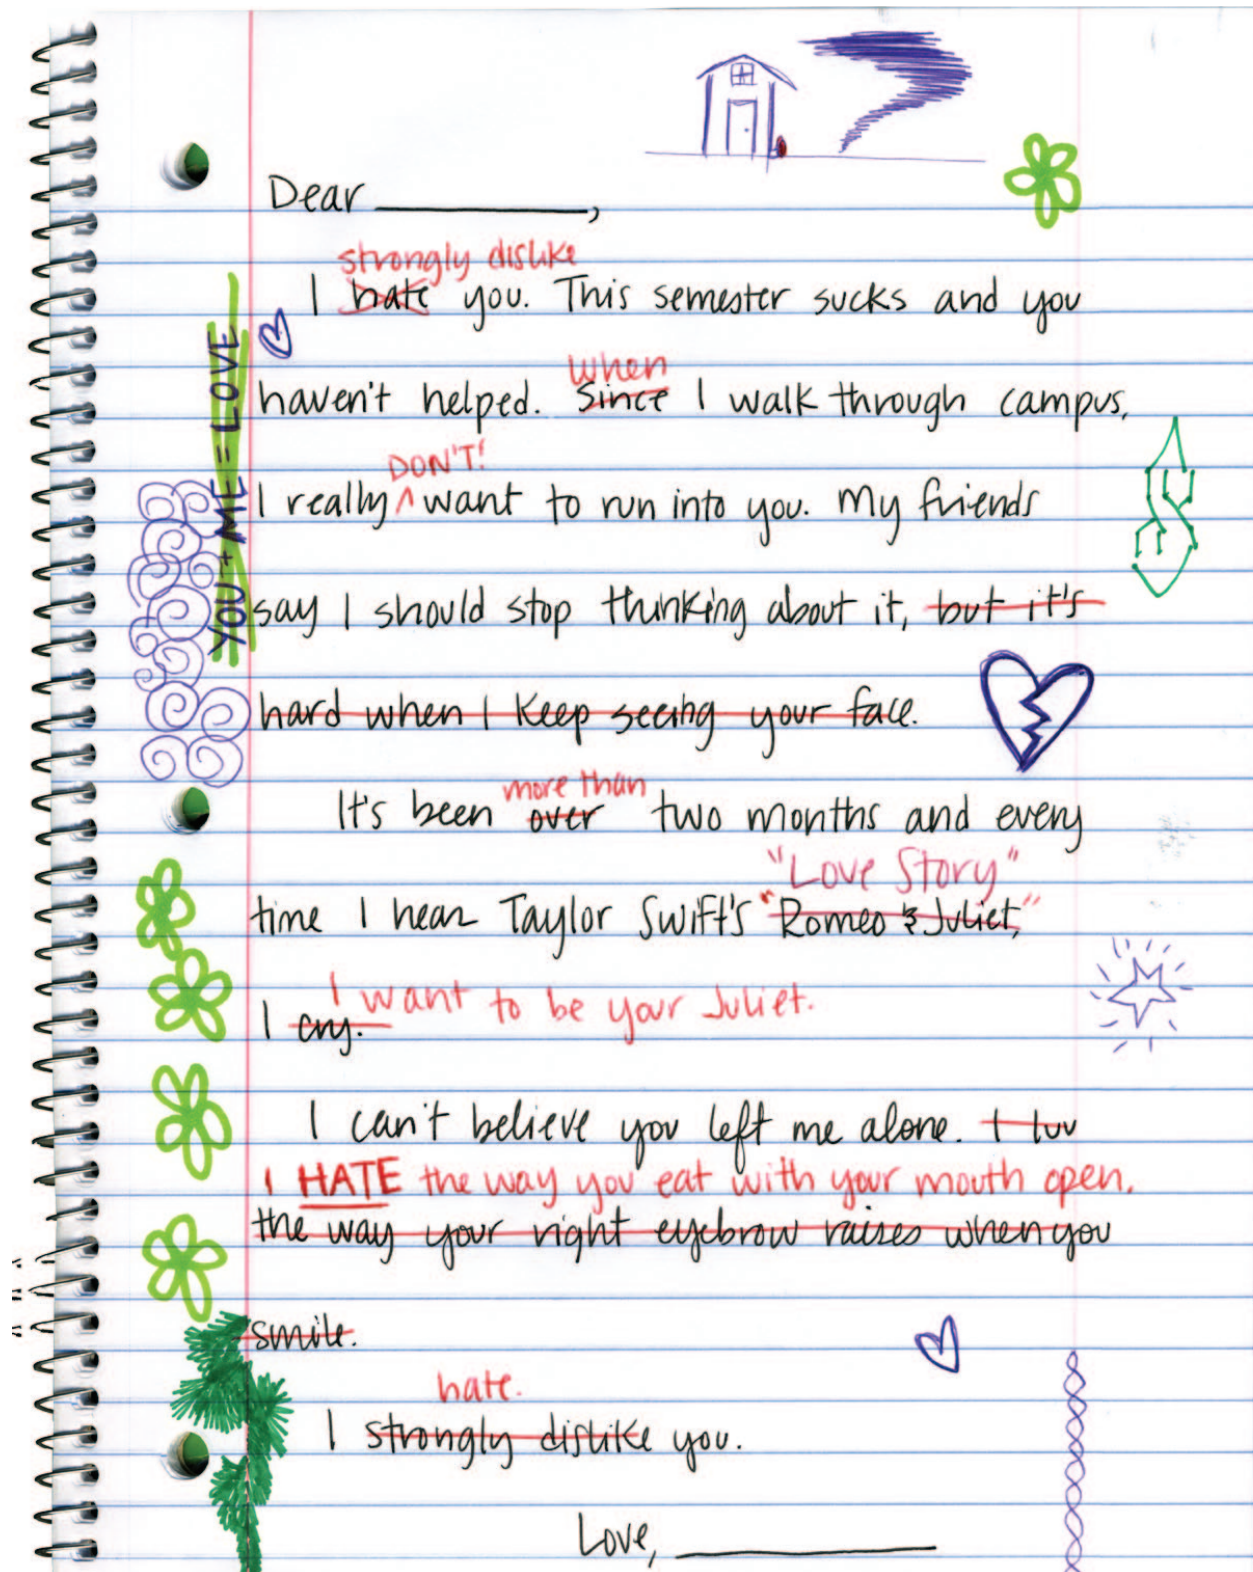 Dear __________,
strongly dislike
I hate you. This semester sucks and you
when
haven't helped. Since I walk through campus,
DON'T!
I really ^ want to run into you. My friends
say I should stop thinking about it, but it's
hard when I keep seeing your face.
more than
It's been over two months and every
"Love Story"
time I hear Taylor Swift's "Romeo & Juliet,"
I want to be your Juliet.
I cry.
I can't believe you left me alone. I luv
I HATE the way you eat with your mouth open.
the way your right eyebrow raises when you
smile.
hate.
I strongly dislike you.
Love, __________
YOU + ME = LOVE